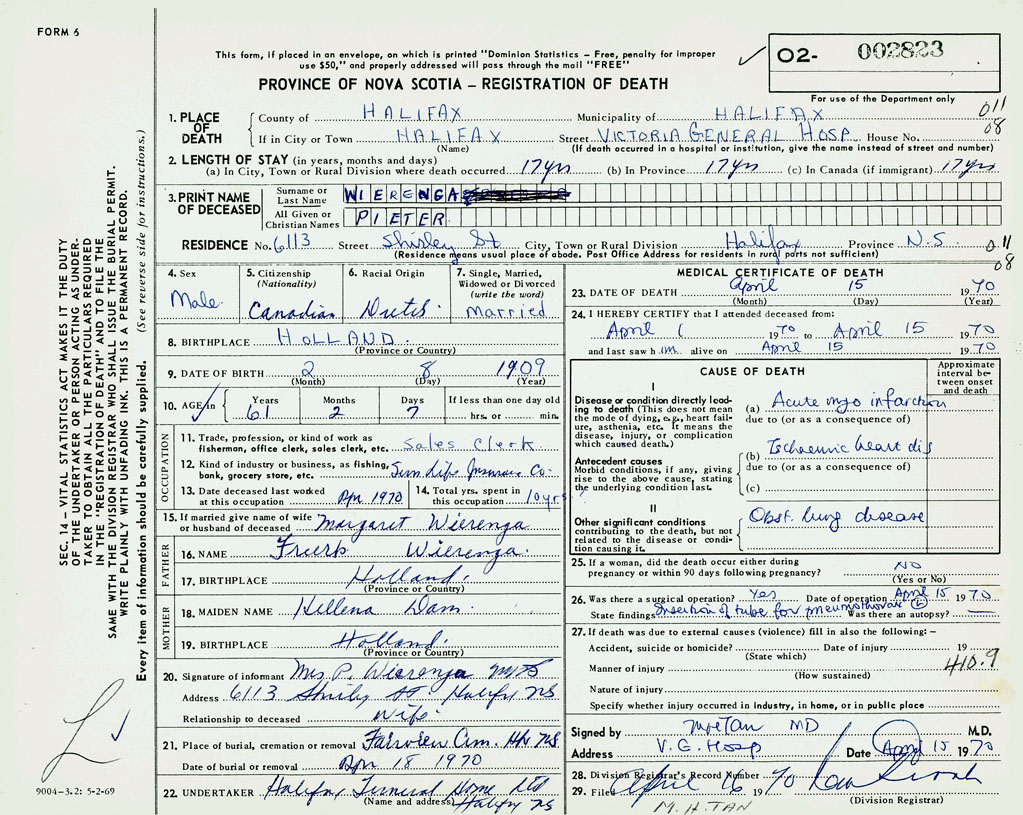 FORM 6
This form, if placed in an envelope, on which is printed "Dominion Statistics – Free, penalty for improper
use $50," and properly addressed will pass through the mail "FREE"
PROVINCE OF NOVA SCOTIA – REGISTRATION OF DEATH
O2- 002823
For use of the Department only
011
08
1. PLACE OF DEATH
County of HALIFAX Municipality of HALIFAX
If in City or Town HALIFAX Street VICTORIA GENERAL HOSP House No.
(Name) (If death occurred in a hospital or institution, give the name instead of street and number)
2. LENGTH OF STAY (in years, months and days)
(a) In City, Town or Rural Division where death occurred 17 yrs (b) In Province 17 yrs (c) In Canada (if immigrant) 17 yrs
3. PRINT NAME OF DECEASED
Surname or Last Name WIERENGA
All Given or Christian Names PIETER
RESIDENCE No. 6113 Street Shirley St City, Town or Rural Division Halifax Province N.S 011
(Residence means usual place of abode. Post Office Address for residents in rural parts not sufficient) 08
4. Sex Male
5. Citizenship (Nationality) Canadian
6. Racial Origin
7. Single, Married, Widowed or Divorced (write the word) Married
8. BIRTHPLACE HOLLAND
(Province or Country)
9. DATE OF BIRTH 2 8 1909
(Month) (Day) (Year)
10. AGE in Years 61 Months 2 Days 7 If less than one day old hrs. or min.
OCCUPATION
11. Trade, profession, or kind of work as
fisherman, office clerk, sales clerk, etc. Sales Clerk
12. Kind of industry or business, as fishing,
bank, grocery store, etc. Sun Life Insurance Co
13. Date deceased last worked
at this occupation Apr 1970
14. Total yrs. spent in
this occupation 10 yrs
15. If married give name of wife
or husband of deceased Margaret Wierenga
FATHER
16. NAME Wierenga
17. BIRTHPLACE Holland
(Province or Country)
MOTHER
18. MAIDEN NAME Hellena Dam
19. BIRTHPLACE Holland
(Province or Country)
20. Signature of informant Mrs P. Wierenga
Address 6113 Shirley St Halifax NS
Relationship to deceased Wife
21. Place of burial, cremation or removal Fairview Cem. Hfx NS
Date of burial or removal Apr 18 1970
22. UNDERTAKER Halifax Funeral Home Ltd
(Name and address) Halifax NS
MEDICAL CERTIFICATE OF DEATH
23. DATE OF DEATH April 15 1970
(Month) (Day) (Year)
24. I HEREBY CERTIFY that I attended deceased from:
April 1 1970 to April 15 1970
and last saw him alive on April 15 1970
CAUSE OF DEATH
Approximate interval between onset and death
I
Disease or condition directly leading to death (This does not mean the mode of dying, e.g., heart failure, asthenia, etc. It means the disease, injury, or complication which caused death.)
(a) Acute myo infarction
due to (or as a consequence of)
Antecedent causes
Morbid conditions, if any, giving rise to the above cause, stating the underlying condition last.
(b) Ischaemic heart dis
due to (or as a consequence of)
(c)
II
Other significant conditions contributing to the death, but not related to the disease or condition causing it.
Obst. lung disease
25. If a woman, did the death occur either during
pregnancy or within 90 days following pregnancy? NO
(Yes or No)
26. Was there a surgical operation? Yes Date of operation April 15 1970
State findings Insertion of tube for pneumothorax Was there an autopsy?
27. If death was due to external causes (violence) fill in also the following: –
Accident, suicide or homicide? Date of injury 19
(State which)
Manner of injury 410.9
(How sustained)
Nature of injury
Specify whether injury occurred in industry, in home, or in public place
Signed by MD M.D.
Address V.G. Hosp Date April 15 1970
28. Division Registrar's Record Number
29. Filed April 16 1970
(Division Registrar)
M.H. TAN
SEC. 14 – VITAL STATISTICS ACT MAKES IT THE DUTY
OF THE UNDERTAKER OR PERSON ACTING AS UNDERTAKER
TO OBTAIN ALL THE PARTICULARS REQUIRED
IN THE "REGISTRATION OF DEATH" AND TO FILE THE
SAME WITH THE DIVISION REGISTRAR WHO SHALL ISSUE THE BURIAL PERMIT.
WRITE PLAINLY WITH UNFADING INK. THIS IS A PERMANENT RECORD.
Every item of information should be carefully supplied. (See reverse side for instructions.)
9004-3.2: 5-2-69